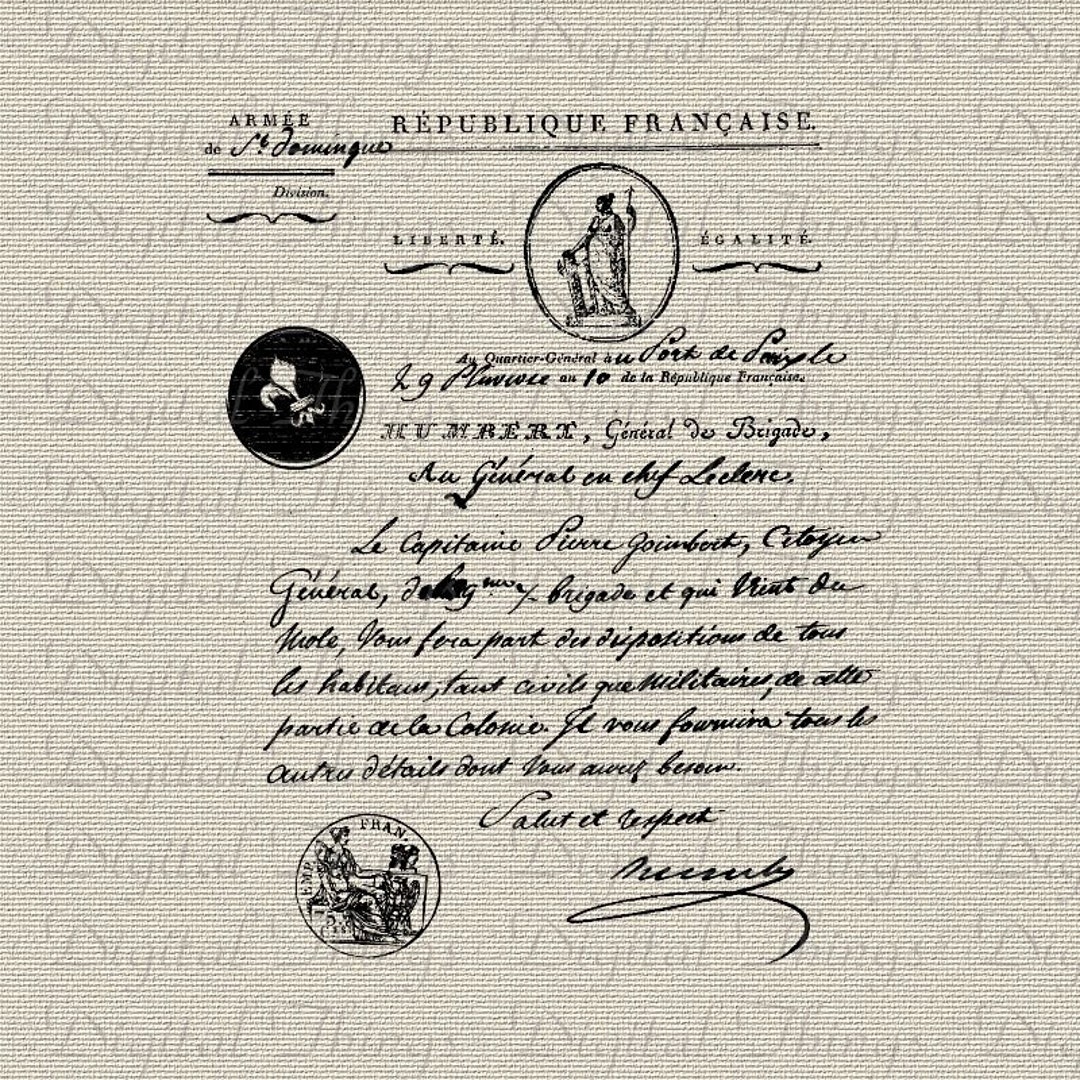 ARMÉE
de St. Domingue
Division.
RÉPUBLIQUE FRANÇAISE.
LIBERTÉ.
ÉGALITÉ.
Au Quartier-Général à au Port de Paix le
29 Pluviose an 10 de la République Française.
HUMBERT, Général de Brigade,
Au Général en chef Leclerc.
Le Capitaine Pierre, Citoyen
Général, de brigade et qui Vient du
Mole, Vous fera part des dispositions de tous
les habitans, tant civils que Militaires, de cette
partie de la Colonie. Il vous fournira tous les
autres détails dont Vous aurez besoin.
Salut et respect
EMP. FRAN.
Digital Things